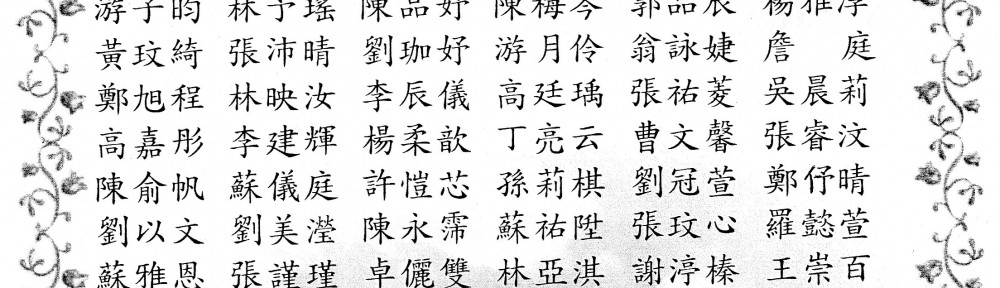 游子昀 林予瑤 陳品妤 陳梅岑 郭品辰 楊雅淳
黃玟綺 張沛晴 劉珈妤 游月伶 翁詠婕 詹 庭
鄭旭程 林映汝 李辰儀 高廷瑀 張祐菱 吳晨莉
高嘉彤 李建輝 楊柔歆 丁亮云 曹文馨 張睿汶
陳俞帆 蘇儀庭 許愷芯 孫莉棋 劉冠萱 鄭伃晴
劉以文 劉美瀅 陳永霈 蘇祐陞 張玟心 羅懿萱
蘇雅恩 張謹瑾 卓儷雙 林亞淇 謝渟榛 王崇百